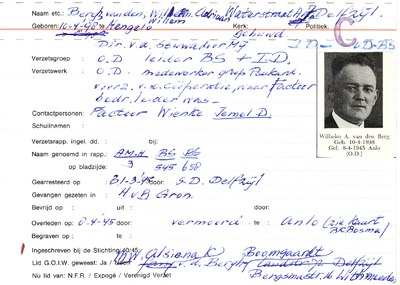 Naam etc.: Berg, van den, Wilhelm Adriaan Waterstraat Delfzijl.
Willem
Geboren: 10-4-98 te Hengelo Kerk: Politiek:
Gehuwd C
Dir. v.d. I.D. - O.D-BS
Verzetsgroep : O.D leider BS + I.D.
Verzetswerk : O.D. medewerker groep
voorz. v.d. Coöperatie, waar Facteur
bedr. leider was -
Contactpersonen: Facteur Wienke D.
Schuilnamen :
Verzetsrapp. ingel. dd. : bij:
Naam genoemd in rapp.: A.M.H BS BS
op bladzijde: 3 545 658
Gearresteerd op : 31-3-'45 door: S.D. Delfzijl
Gevangen gezeten in : H.v.B Gron.
Bevrijd op : uit : door:
Overleden op : 8-4-'45 door: vermoord te : Anlo (zie kaart
Begraven op : te : Bosma)
Ingeschreven bij de Stichting 40/45:
Lid G.O.I.W. geweest: Ja / Boomgaardt
v.d. Berg Delfzijl
Nu lid van: N.F.R. / Expogé / Verenigd Verzet
Wilhelm A. van den Berg
Geb. 10-4-1898
Gef. 8-4-1945 Anlo
(O.D.)